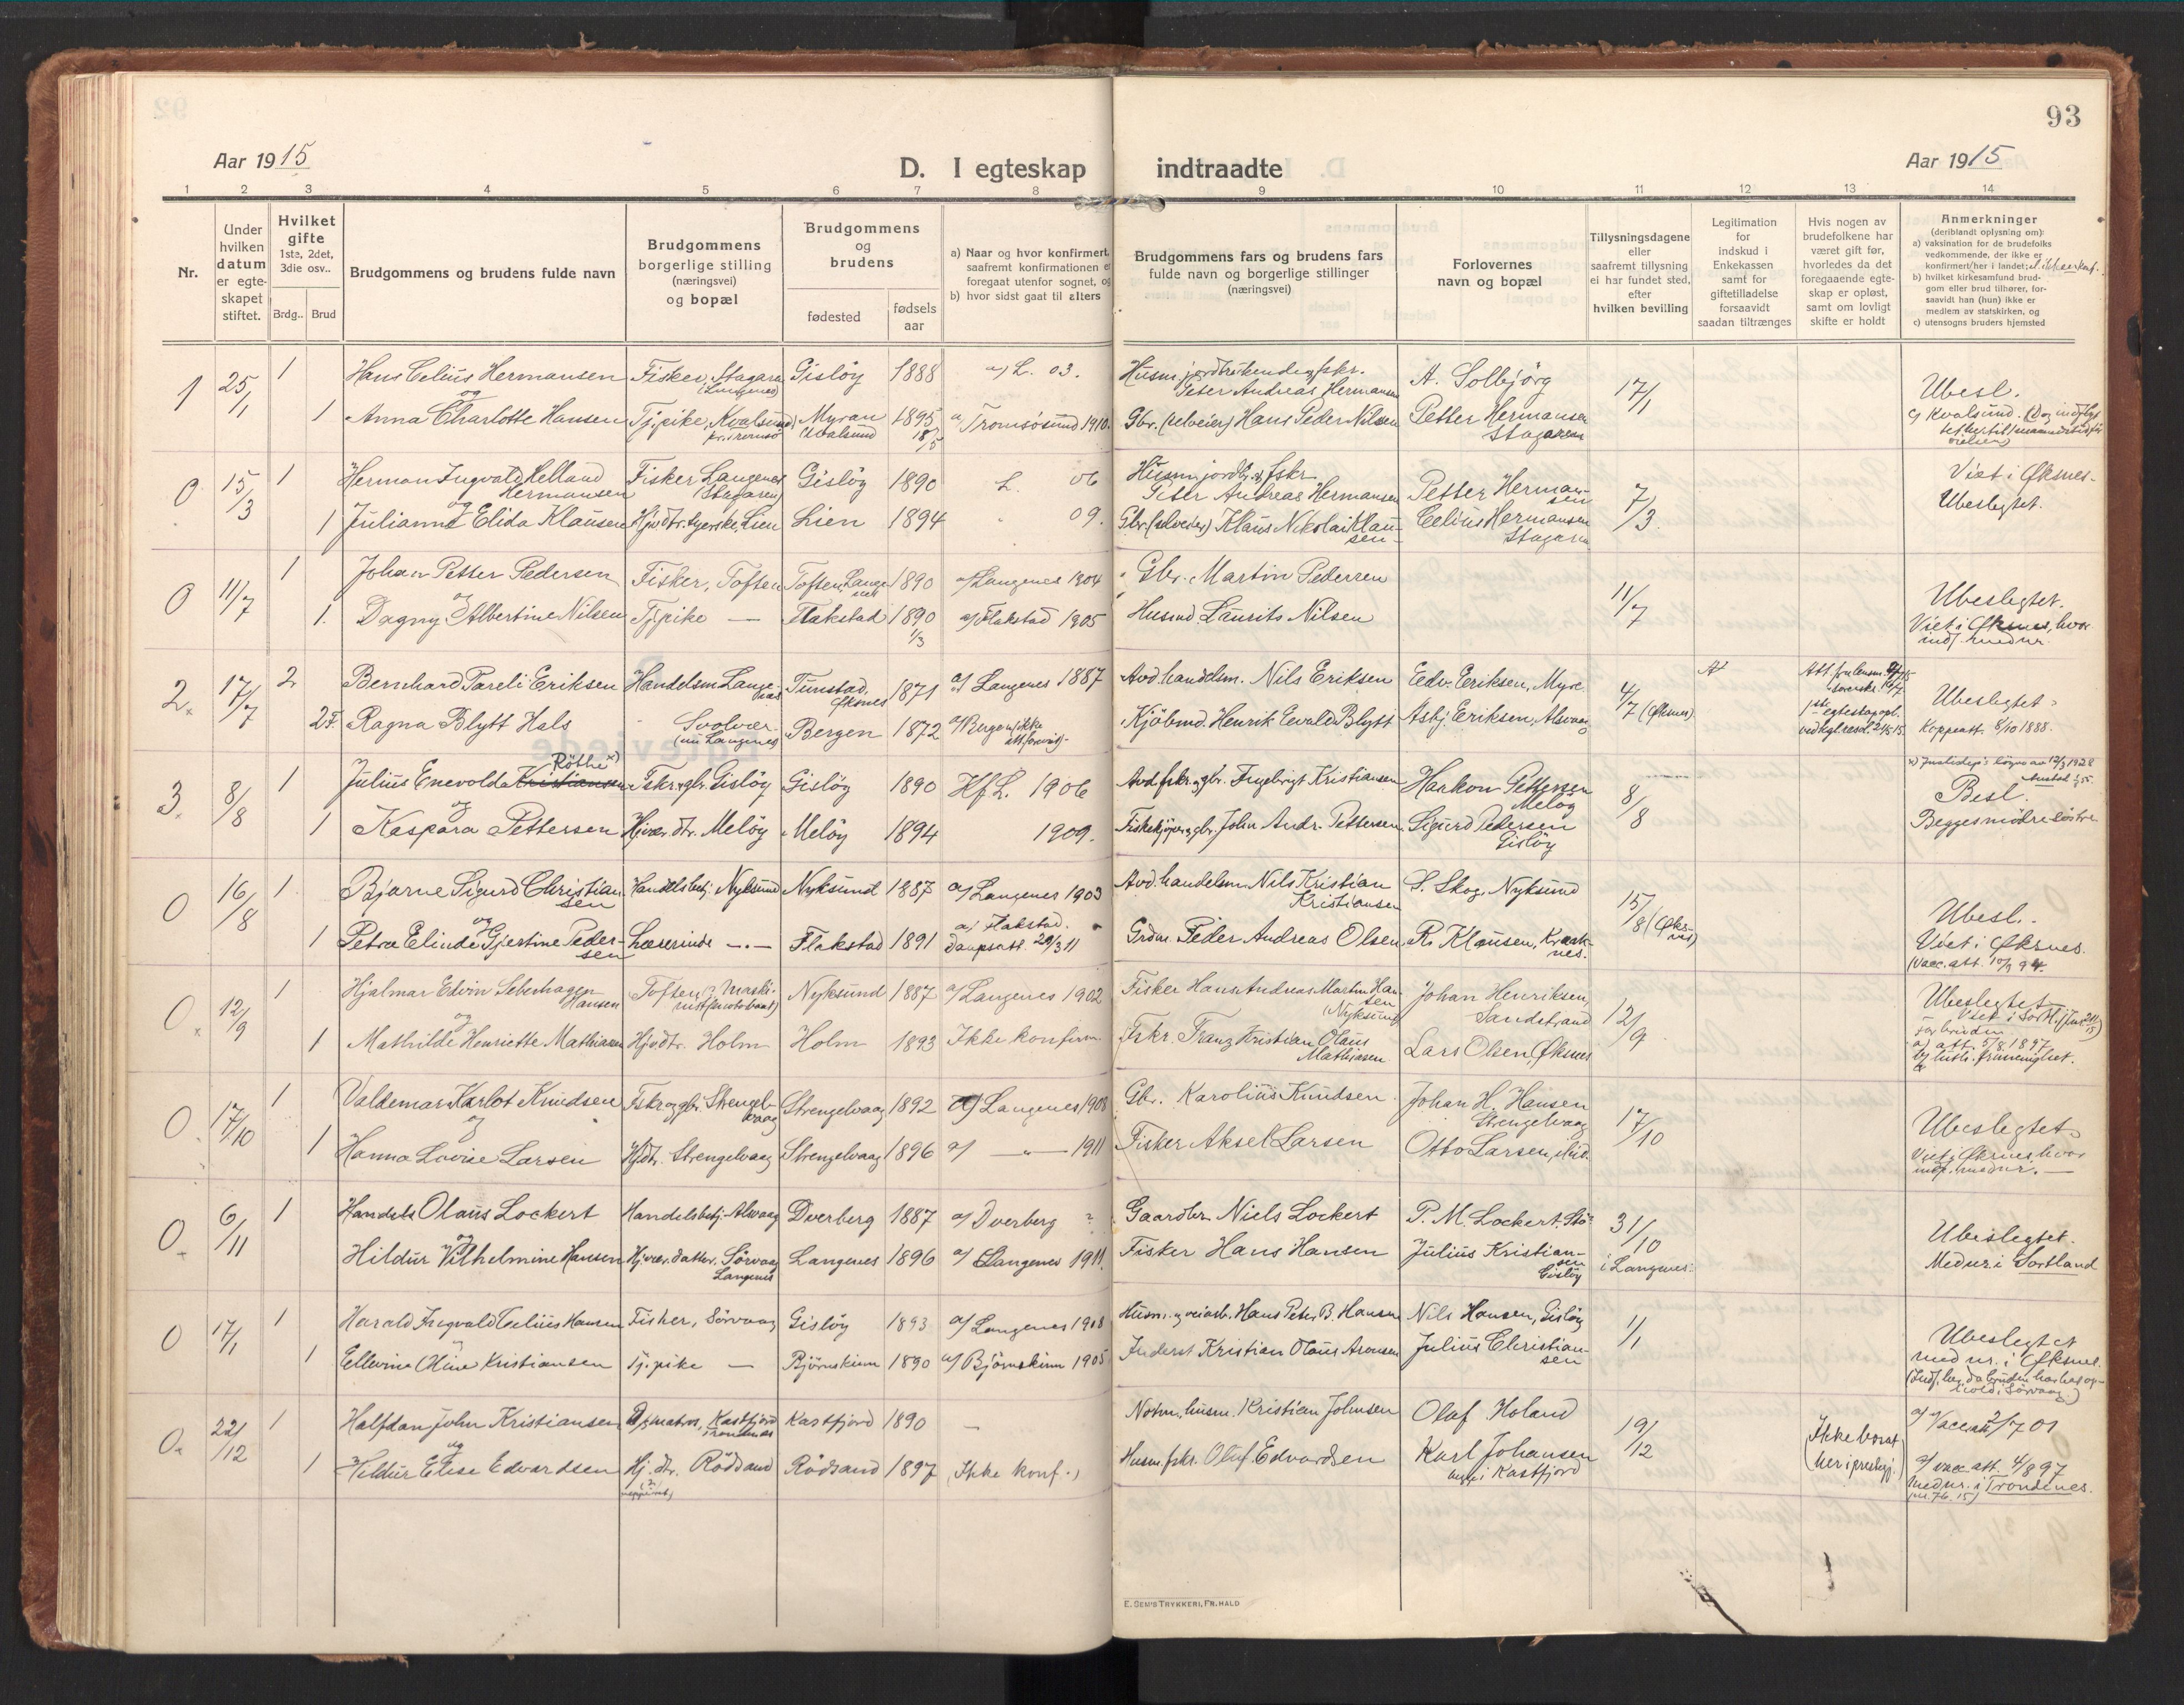 93
Aar 1915
D. I egteskap indtraadte
Aar 1915
1 2 3 4 5 6 7 8 9 10 11 12 13 14
Nr.
Under hvilken datum er egteskapet stiftet.
Hvilket gifte 1ste, 2det, 3die osv..
Brdg.. Brud
Brudgommens og brudens fulde navn
Brudgommens borgerlige stilling (næringsvei) og bopæl
Brudgommens og brudens
fødested
fødselsaar
a) Naar og hvor konfirmert, saafremt konfirmationen er foregaat utenfor sognet, og
b) hvor sidst gaat til alters
Brudgommens fars og brudens fars fulde navn og borgerlige stillinger (næringsvei)
Forlovernes navn og bopæl
Tillysningsdagene eller saafremt tillysning ei har fundet sted, efter hvilken bevilling
Legitimation for indskud i Enkekassen samt for giftetilladelse forsaavidt saadan tiltrænges
Hvis nogen av brudefolkene har været gift før, hvorledes da det foregaaende egteskap er opløst, samt om lovligt skifte er holdt
Anmerkninger (deriblandt oplysning om):
a) vaksination for de brudefolks vedkommende, der ikke er konfirmert her i landet;
b) hvilket kirkesamfund brudgom eller brud tilhører, forsaavidt han (hun) ikke er medlem av statskirken, og
c) utensogns bruders hjemsted
1 25/1 1 Hans Celius Hermansen Fisker, Stagaren (Langenes) Gisløy 1888 a) L. 03. Husm. jordbrukende fskr. Peter Andreas Hermansen A. Solbjörg 17/1 Ubesl.
og
1 Anna Charlotte Hansen Tj.pike, Kvalsund Myran Kvalsund 1895 18/5 a) Tromsøsund 1910. Gbr. (selveier) Hans Peder Nilsen Petter Hermansen Stagaren c) Kvalsund.
0 15/3 1 Herman Ingvald Helland Hermansen Fisker Langenes (Stagaren) Gisløy 1890 L. 06 Husm. jordbr. og fskr. Peter Andreas Hermansen Petter Hermansen 7/3 Viet i Øksnes.
og
1 Julianne Elida Klausen Hjv. dtr. syerske, Lien Lien 1894 09. Gbr. (selveier) Klaus Nikolai Klausen Celius Hermansen Stagaren Ubeslegtet.
0 11/7 1 Johan Petter Pedersen Fisker, Toften Toften, Langenes 1890 a) Langenes 1904 Gbr. Martin Pedersen 11/7 Ubeslegtet.
og
1. Dagny Albertine Nilsen Tj.pike — Flakstad 1890 1/3 a) Flakstad 1905 Husmd. Laurits Nilsen Viet i Øksnes, hvor indf. med nr.
2. 17/7 2 Bernhard Pareli Eriksen Handelsm. Langenes Tunstad, Øksnes 1871 a) Langenes 1887 Avd. handelsm. Nils Eriksen Edv. Eriksen, Myre 4/7 (Øksnes) At Ubeslegtet.
2 F. Ragna Blytt Hals Svolvær (nu Langenes) Bergen 1872 a) Bergen (ikke att. forevist). Kjøbmd. Henrik Ewald Blytt Asbj. Eriksen, Alsvaag 1ste egteskap opl. ved kgl. resol. Koppeatt. 8/10 1888.
3. 8/8 1 Julius Enevold Kristiansen Röthe x) Fskr. og gbr. Gisløy Gisløy 1890 Kf. L. 1906 Avd. fskr. og gbr. Ingebrigt Kristiansen Haakon Pettersen Meløy 8/8 Besl.
og
1 Kaspara Pettersen Hjvær. dtr. Meløy Meløy 1894 1909. Fiskekjøper og gbr. John Andr. Pettersen Sigurd Pedersen Gisløy Begges mödre söstre
0 16/8 1 Bjarne Sigurd Christiansen Handelsbetj. Nyksund Nyksund 1887 a) Langenes 1903 Avd. handelsm. Nils Kristian Kristiansen S. Skog, Nyksund 15/8 (Øksnes) Ubesl.
og
1 Petra Elinde Gjertine Pedersen Læserinde —.— Flakstad 1891 a) Flakstad. Daapsatt. 29/3 11 Grdm. Peder Andreas Olsen R. Klausen, Kraaknes. Viet i Øksnes. (Vacc. att. 10/9 94.
0. 12/9 1 Hjalmar Edvin Seterhagen Hansen Toften, Nyksund 1887 a) Langenes 1902 Fisker Hans Andreas Martin Hansen (Nyksund) Johan Henriksen, Sandstrand 12/9 Ubeslegtet
og
1 Mathilde Henriette Mathiassen Hjv. dtr. Holm Holm 1893 Ikke konfirm. Fskr. Franz Kristian Olaus Mathiasen Lars Olsen, Øksnes a) att. 5/8 1897
0. 17/10 1 Valdemar Karlot Knudsen Fskr. og gbr. Strengelvaag Strengelvaag 1892 a) Langenes 1908 Gbr. Karolius Knudsen Johan H. Hansen Strengelvaag 17/10 Ubeslegtet
og
1 Hanna Lovise Larsen Hjdtr. Strengelvaag Strengelvaag 1896 a) —"— 1911 Fisker Aksel Larsen Otto Larsen, ibid. Viet i Øksnes hvor indf. med nr. —
0. 6/11 1 Handels Olaus Lockert Handelsbetj. Alsvaag Dverberg 1887 a) Dverberg ? Gaardbr. Niels Lockert P. M. Lockert, Stö 31/10 i Langenes. Ubeslegtet.
og
Hildur Vilhelmine Hansen Hjvær. datter. Sørvaag Langenes Langenes 1896 a) Langenes 1911. Fisker Hans Hansen Julius Kristiansen Gisløy Med nr. i Sortland
0 17/1 1 Harald Ingvald Celius Hansen Fisker, Sørvaag Gisløy 1893 a) Langenes 1908 Husm. og veiarb. Hans Peter B. Hansen Nils Hansen, Gisløy 1/1 Ubeslegtet
og
1 Ellevine Oline Kristiansen Tj.pike — Bjørnskinn 1890 a) Bjørnskinn 1905 Inderst Kristian Olaus Aronsen Julius Christiansen med nr. i Øksnes.
0. 22/12 1 Halfdan John Kristiansen Kastfjord Trondenes Kastfjord 1890 — Kristian Johnsen Olaf Holand 19/12 (Ikke boret her i prestegj.) a) Vacc. att. 2/7 01
og
1 Hildur Elise Edvardsen Hj. dtr. Rödsand Rödsand 1897 (Ikke konf.) Husm. fskr. Oluf Edvardsen Karl Johansen begge i Kastfjord a) vacc. att. 4/8 97
Med nr. i Trondenes.
E. SEM'S TRYKKERI, FR. HALD